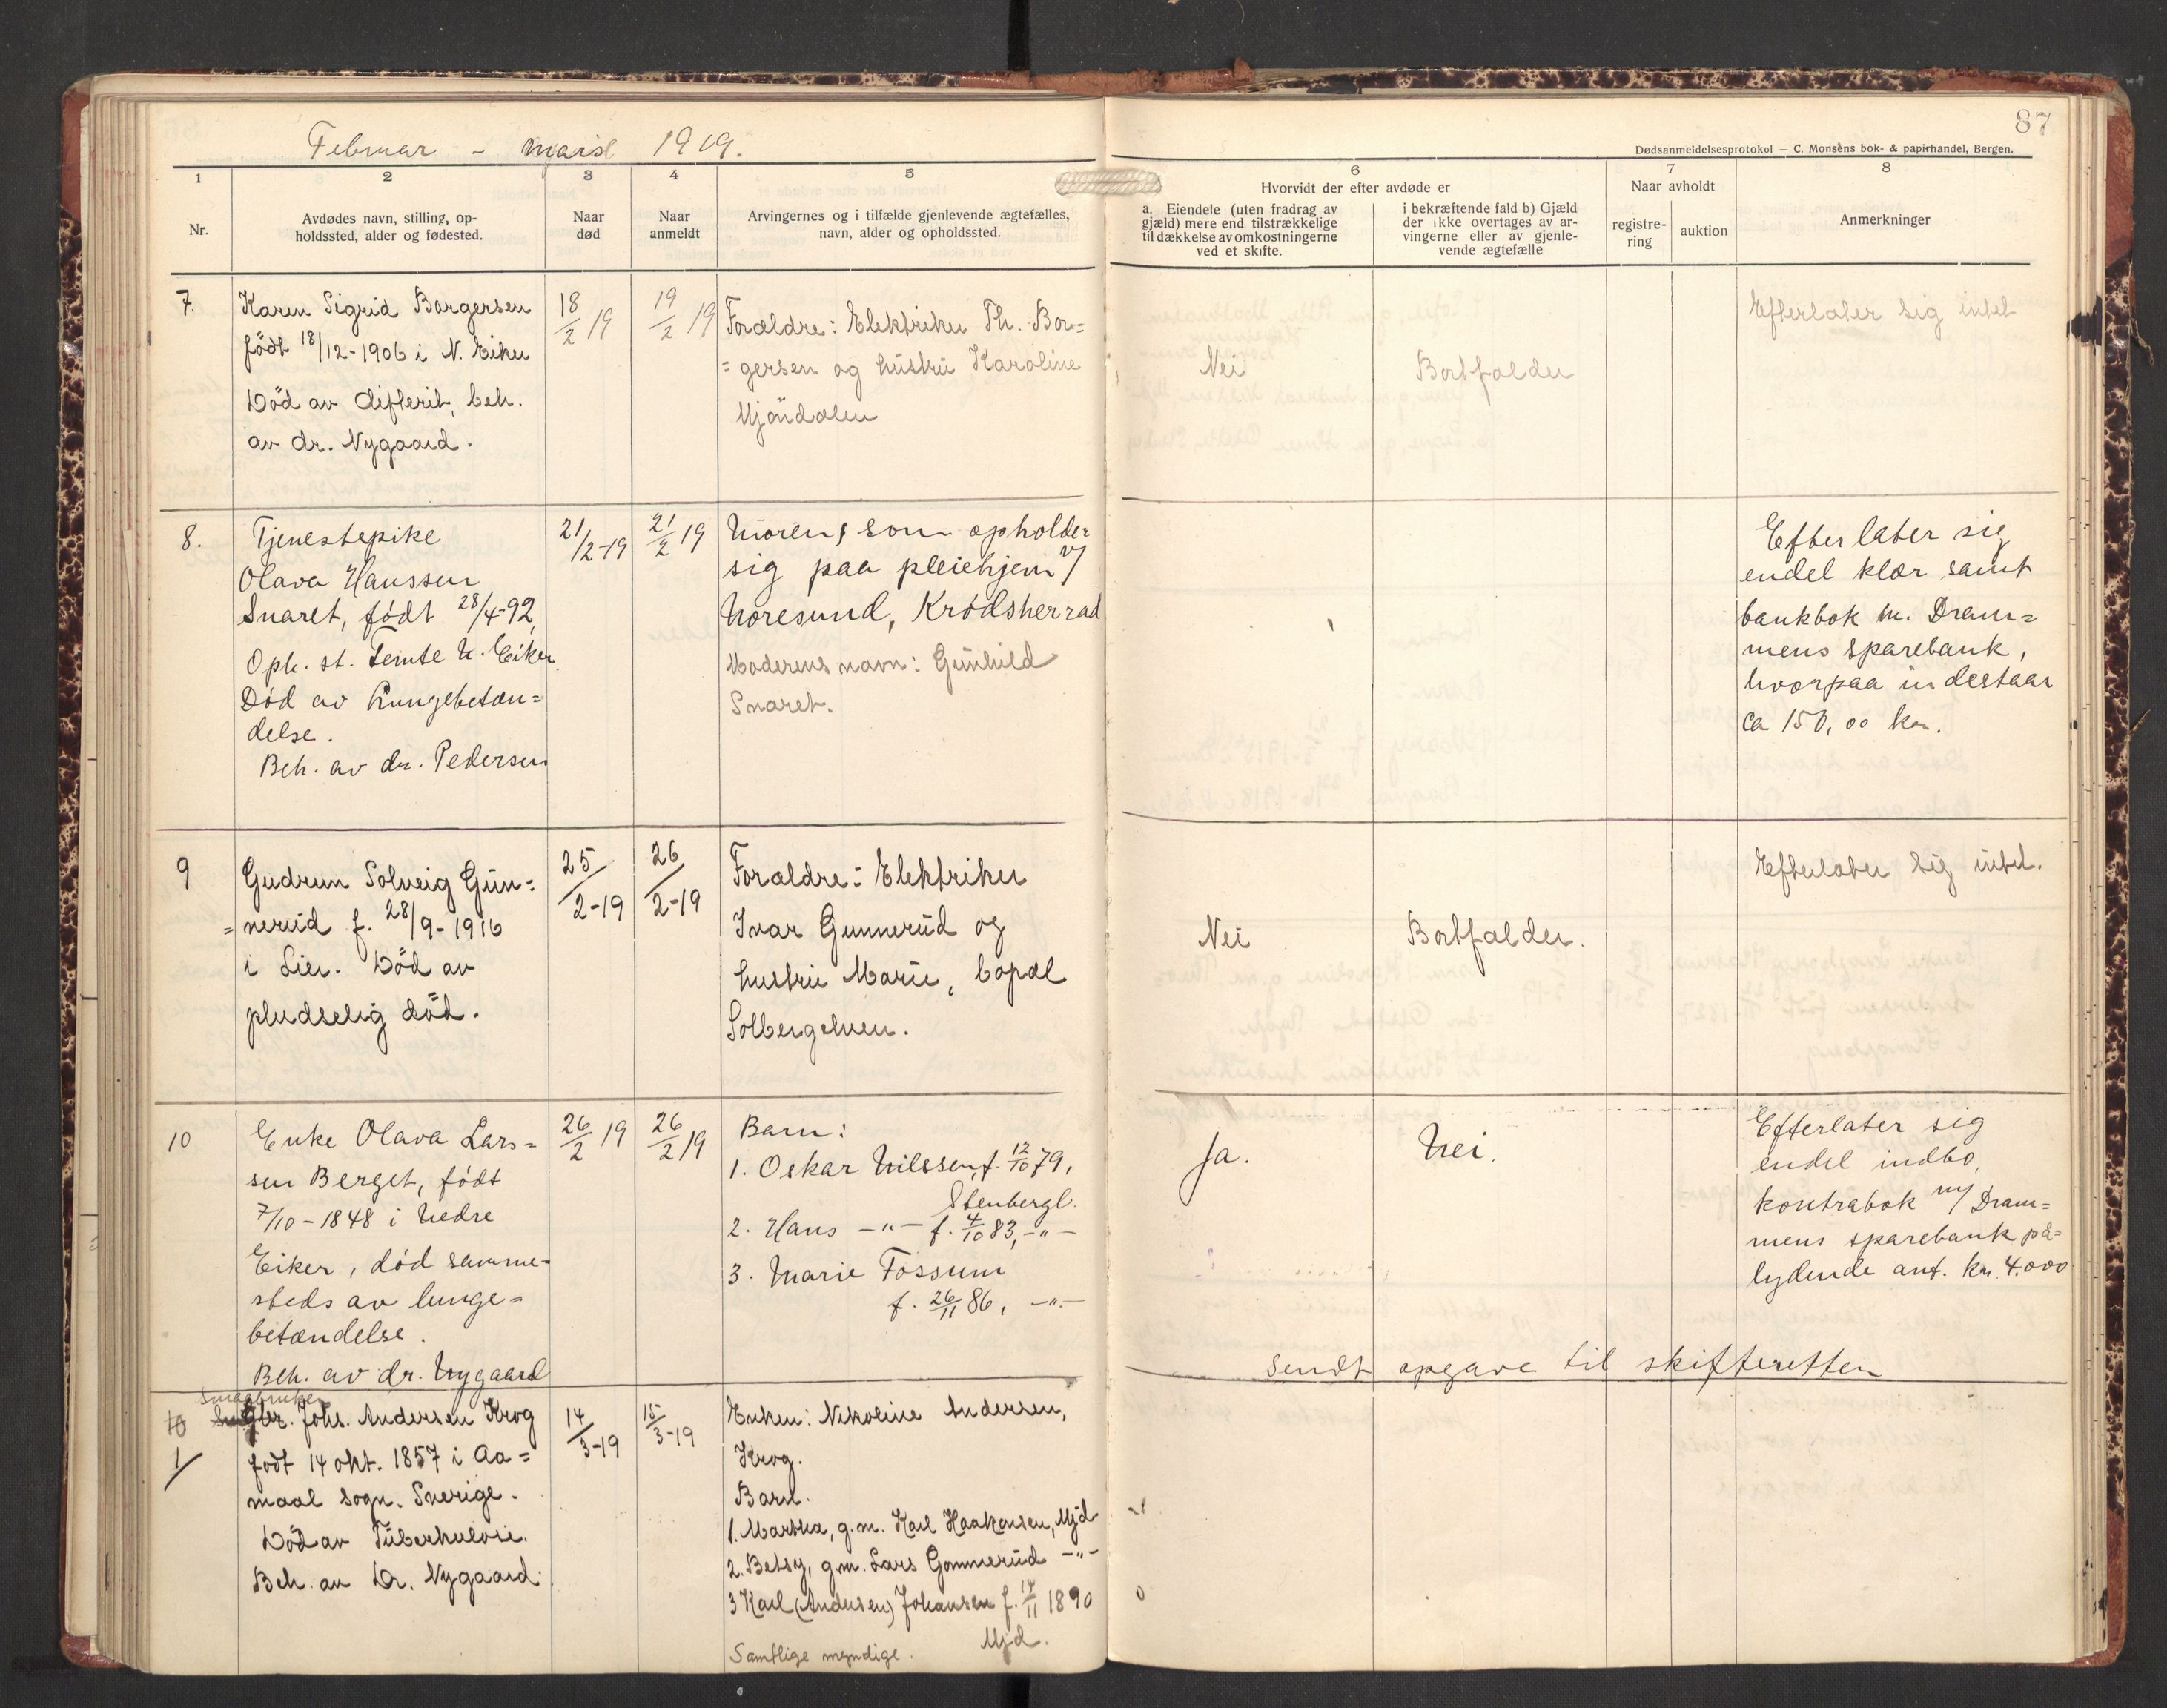 Februar - Marts 1919.
87
Dødsanmeldelsesprotokol — C. Monsens bok- & papirhandel, Bergen.
1
Nr.
2
Avdødes navn, stilling, op-
holdssted, alder og fødested.
3
Naar
død
4
Naar
anmeldt
5
Arvingernes og i tilfælde gjenlevende ægtefælles,
navn, alder og opholdssted.
6
Hvorvidt der efter avdøde er
a. Eiendele (uten fradrag av
gjæld) mere end tilstrækkelige
til dækkelse av omkostningerne
ved et skifte.
i bekræftende fald b) Gjæld
der ikke overtages av ar-
vingerne eller av gjenle-
vende ægtefælle
7
Naar avholdt
registre-
ring
auktion
8
Anmerkninger
7.
Karen Sigrid Borgersen
födt 18/12-1906 i N. Eiker
Död av difterit, beh.
av dr. Nygaard.
18/2 19
19/2 19
Forældre: Elektriker Th. Bor=
=gersen og hustru Karoline
Mjöndalen
Nei
Bortfalder
Efterlater sig intet
8.
Tjenestepike
Olava Hanssen
Snaret, født 28/4-92,
Oph. st. Temte N. Eiker.
Død av Lungebetæn=
delse.
Beh. av dr. Pedersen
21/2-19
21/2 19
Moren, som opholder
sig paa pleiehjem v/
Noresund, Krødsherrad
Moderens navn: Gunhild
Snaret.
Efterlater sig
endel klær samt
bankbok m. Dram=
mens sparebank,
hvorpaa indestaar
ca 150,00 kr.
9
Gudrun Solveig Gun=
=nerud f. 28/9-1916
i Lier. Död av
pludselig död.
25/2-19
26/2-19
Forældre: Elektriker
Ivar Gunnerud og
hustru Marie, bopæl
Solbergelven.
Nei
Bortfalder.
Efterlater sig intet.
10
Enke Olava Lars=
sen Berget, født
7/10-1848 i Nedre
Eiker, død samme-
steds av lunge=
betændelse.
Beh. av dr. Nygaard
26/2 19
26/2 19
Barn:
1. Oskar Nilssen, f. 12/10 79,
Stenbergl.
2. Hans —"— f. 4/10 83, —"—
3. Marie Fossum
f. 26/11 86, —"—
Ja.
Nei.
Efterlater sig
endel indbo,
kontrabok m/ Dram=
mens sparebank på=
lydende ant. kr. 4.000
Sendt opgave til skifteretten
10
1/
Smaabruker
Gbr. Johs. Andersen Krog
født 14 okt. 1857 i Aa=
maal Sogn. Sverige.
Död av Tuberkulose.
Beh. av Dr. Nygaard.
14/3-19
15/3-19
Enken: Nikoline Andersen,
Krog.
Barn.
1. Martha, g.m. Karl Haakonsen, Mjd
2. Betsy, g.m. Lars Gommerud —"—
3 Karl (Andersen) Johansen f. 14/11 1890
Mjd.
Samtlige myndige.